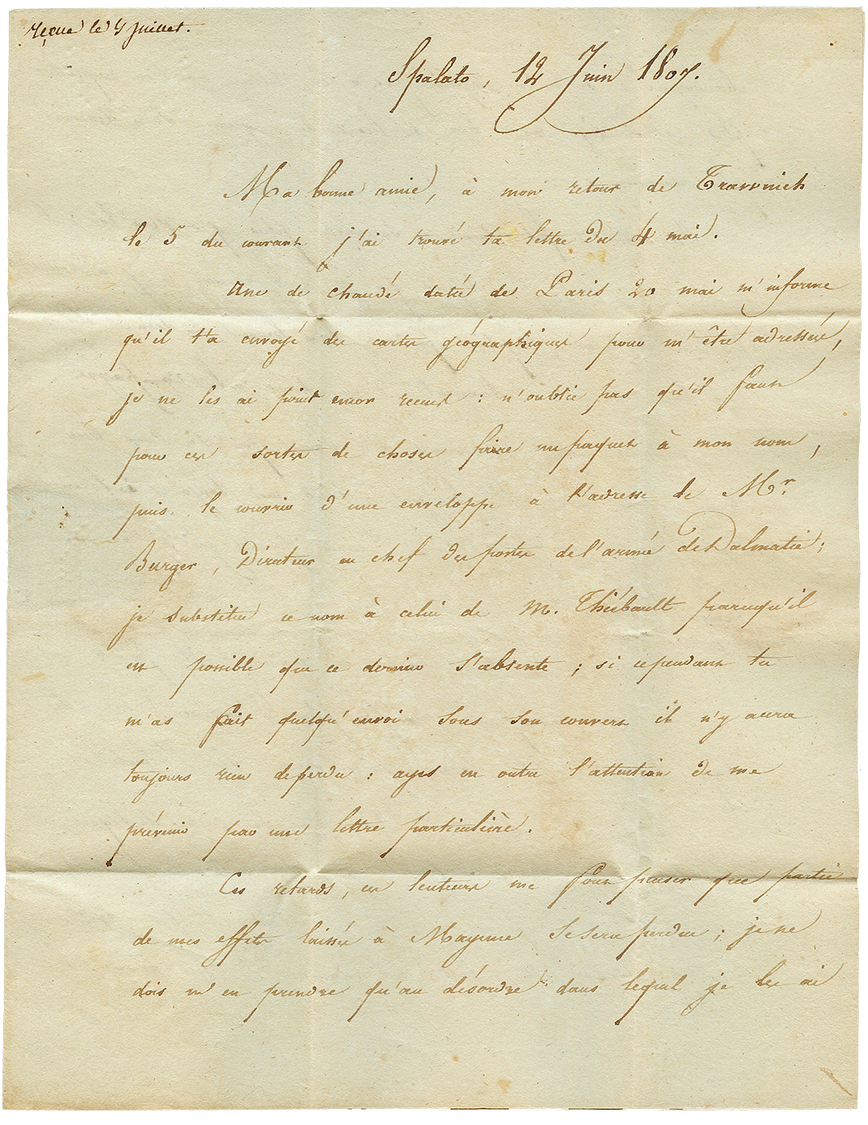 reçue le 4 Juillet.
Spalato, 12 Juin 1807.
Ma bonne amie, à mon retour de Travvnich
le 5 du courant j'ai trouvé ta lettre du 4 mai.
une de chaudé daté de Paris 20 mai m'informe
qu'il t'a envoyé des cartes géographiques pour m'être adressées,
je ne les ai point encor recues : n'oublie pas qu'il faut
pour ces sortes de choses faire un paquet à mon nom,
puis le couvrir d'une enveloppe à l'adresse de Mr.
Burger, Directeur en chef des postes de l'armée de Dalmatie;
je substitue ce nom à celui de M. Thiébault parcequ'il
est possible que ce dernier s'absente ; si cependant tu
m'as fait quelqu'envoi sous son couvert il n'y aura
toujours rien de perdu : ayes en outre l'attention de me
prévenir par une lettre particulière.
Ces retards, ces lenteurs me font penser que partie
de mes effets laissés à Mayence se sera perdue ; je ne
dois m'en prendre qu'au désordre dans lequel je les ai